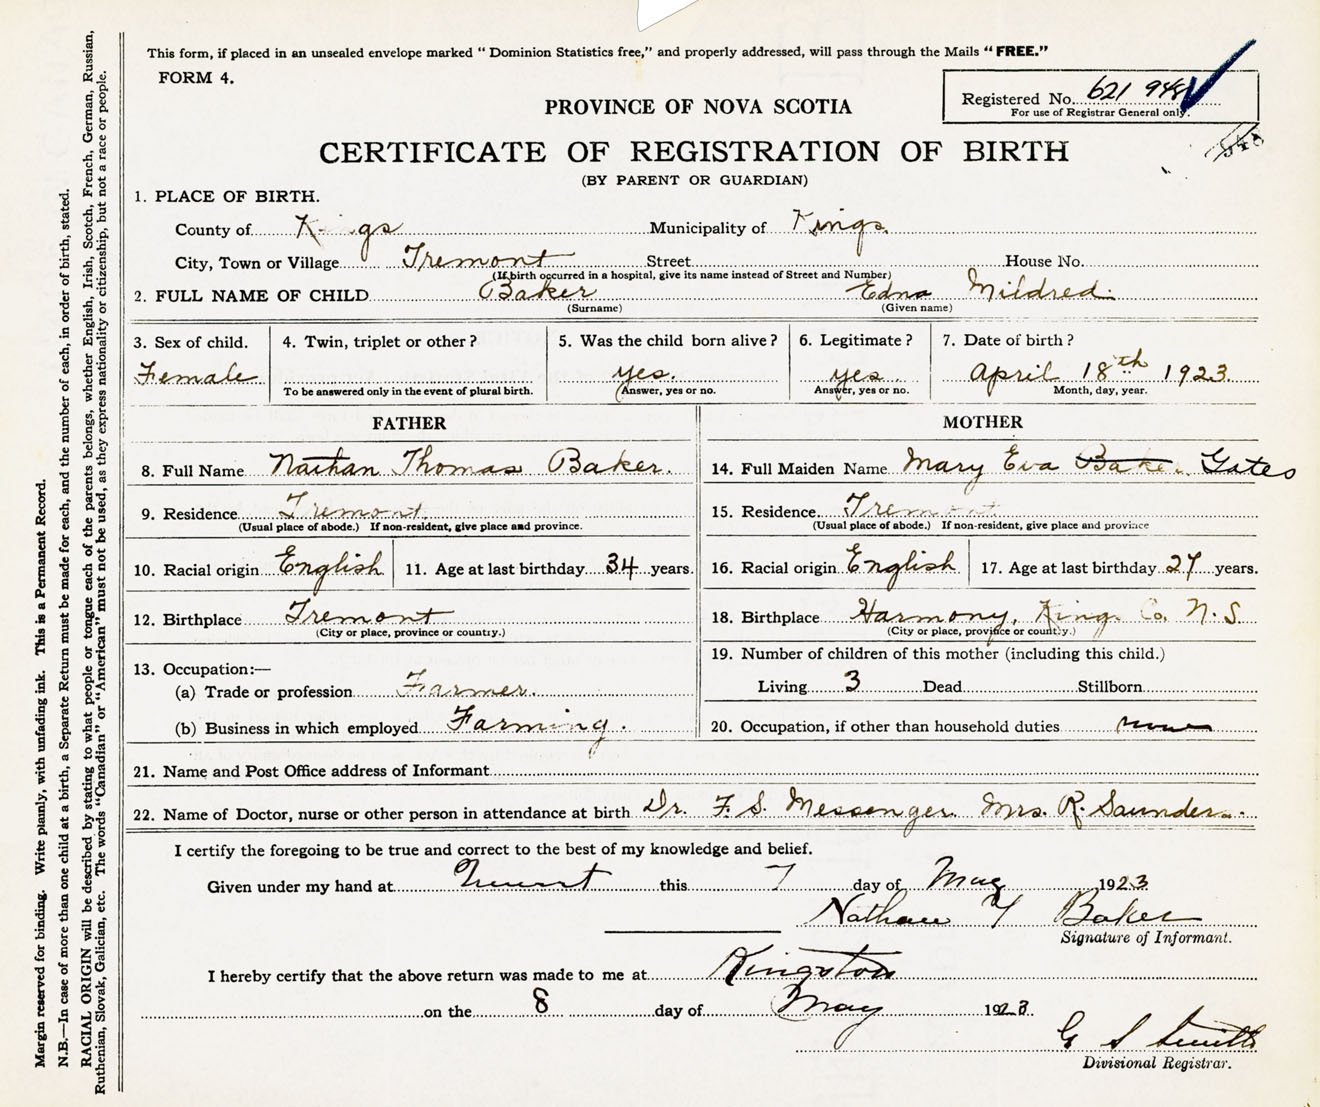 This form, if placed in an unsealed envelope marked " Dominion Statistics free," and properly addressed, will pass through the Mails " FREE."
FORM 4.
Registered No. 621 948
For use of Registrar General only.
PROVINCE OF NOVA SCOTIA
CERTIFICATE OF REGISTRATION OF BIRTH
(BY PARENT OR GUARDIAN)
1. PLACE OF BIRTH.
County of Kings Municipality of Kings.
City, Town or Village Tremont Street House No.
(If birth occurred in a hospital, give its name instead of Street and Number)
2. FULL NAME OF CHILD Baker Edna Mildred.
(Surname) (Given name)
3. Sex of child. 4. Twin, triplet or other ? 5. Was the child born alive ? 6. Legitimate ? 7. Date of birth ?
Female yes. yes. April 18th 1923.
To be answered only in the event of plural birth. (Answer, yes or no. Answer, yes or no. Month, day, year.
FATHER MOTHER
8. Full Name Nathan Thomas Baker. 14. Full Maiden Name Mary Eva Baker Gates
9. Residence Tremont. 15. Residence. Tremont
(Usual place of abode.) If non-resident, give place and province. (Usual place of abode.) If non-resident, give place and province
10. Racial origin English 11. Age at last birthday 34 years. 16. Racial origin English 17. Age at last birthday 27 years.
12. Birthplace Tremont 18. Birthplace Harmony, Kings Co. N. S.
(City or place, province or country.) (City or place, province or country.)
13. Occupation:— 19. Number of children of this mother (including this child.)
(a) Trade or profession Farmer. Living 3 Dead Stillborn
(b) Business in which employed Farming. 20. Occupation, if other than household duties none
21. Name and Post Office address of Informant
22. Name of Doctor, nurse or other person in attendance at birth Dr. F. S. Messenger. Mrs. R. Saunders.
I certify the foregoing to be true and correct to the best of my knowledge and belief.
Given under my hand at Tremont this 7 day of May 1923
Nathan T Baker
Signature of Informant.
I hereby certify that the above return was made to me at Kingston
on the 8 day of May 1923.
G S Smith
Divisional Registrar.
Margin reserved for binding. Write plainly, with unfading ink. This is a Permanent Record.
N.B.—In case of more than one child at a birth, a Separate Return must be made for each, and the number of each, in order of birth, stated.
RACIAL ORIGIN will be described by stating to what people or tongue each of the parents belongs, whether English, Irish, Scotch, French, German, Russian,
Ruthenian, Slovak, Galician, etc. The words "Canadian" or "American" must not be used, as they express nationality or citizenship, but not a race or people.